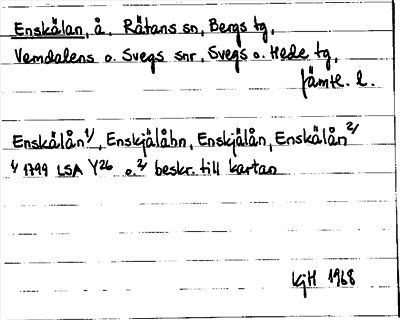 Enskälan, å, Rätans sn, Bergs tg,
Vemdalens o. Svegs snr, Svegs o. Hede tg,
Jämtl. l.
Enskälån 1/, Enskjälåhn, Enskjälån, Enskälån 2/
1/ 1799 LSA Y26 o. 2/ beskr. till kartan
KjH 1968